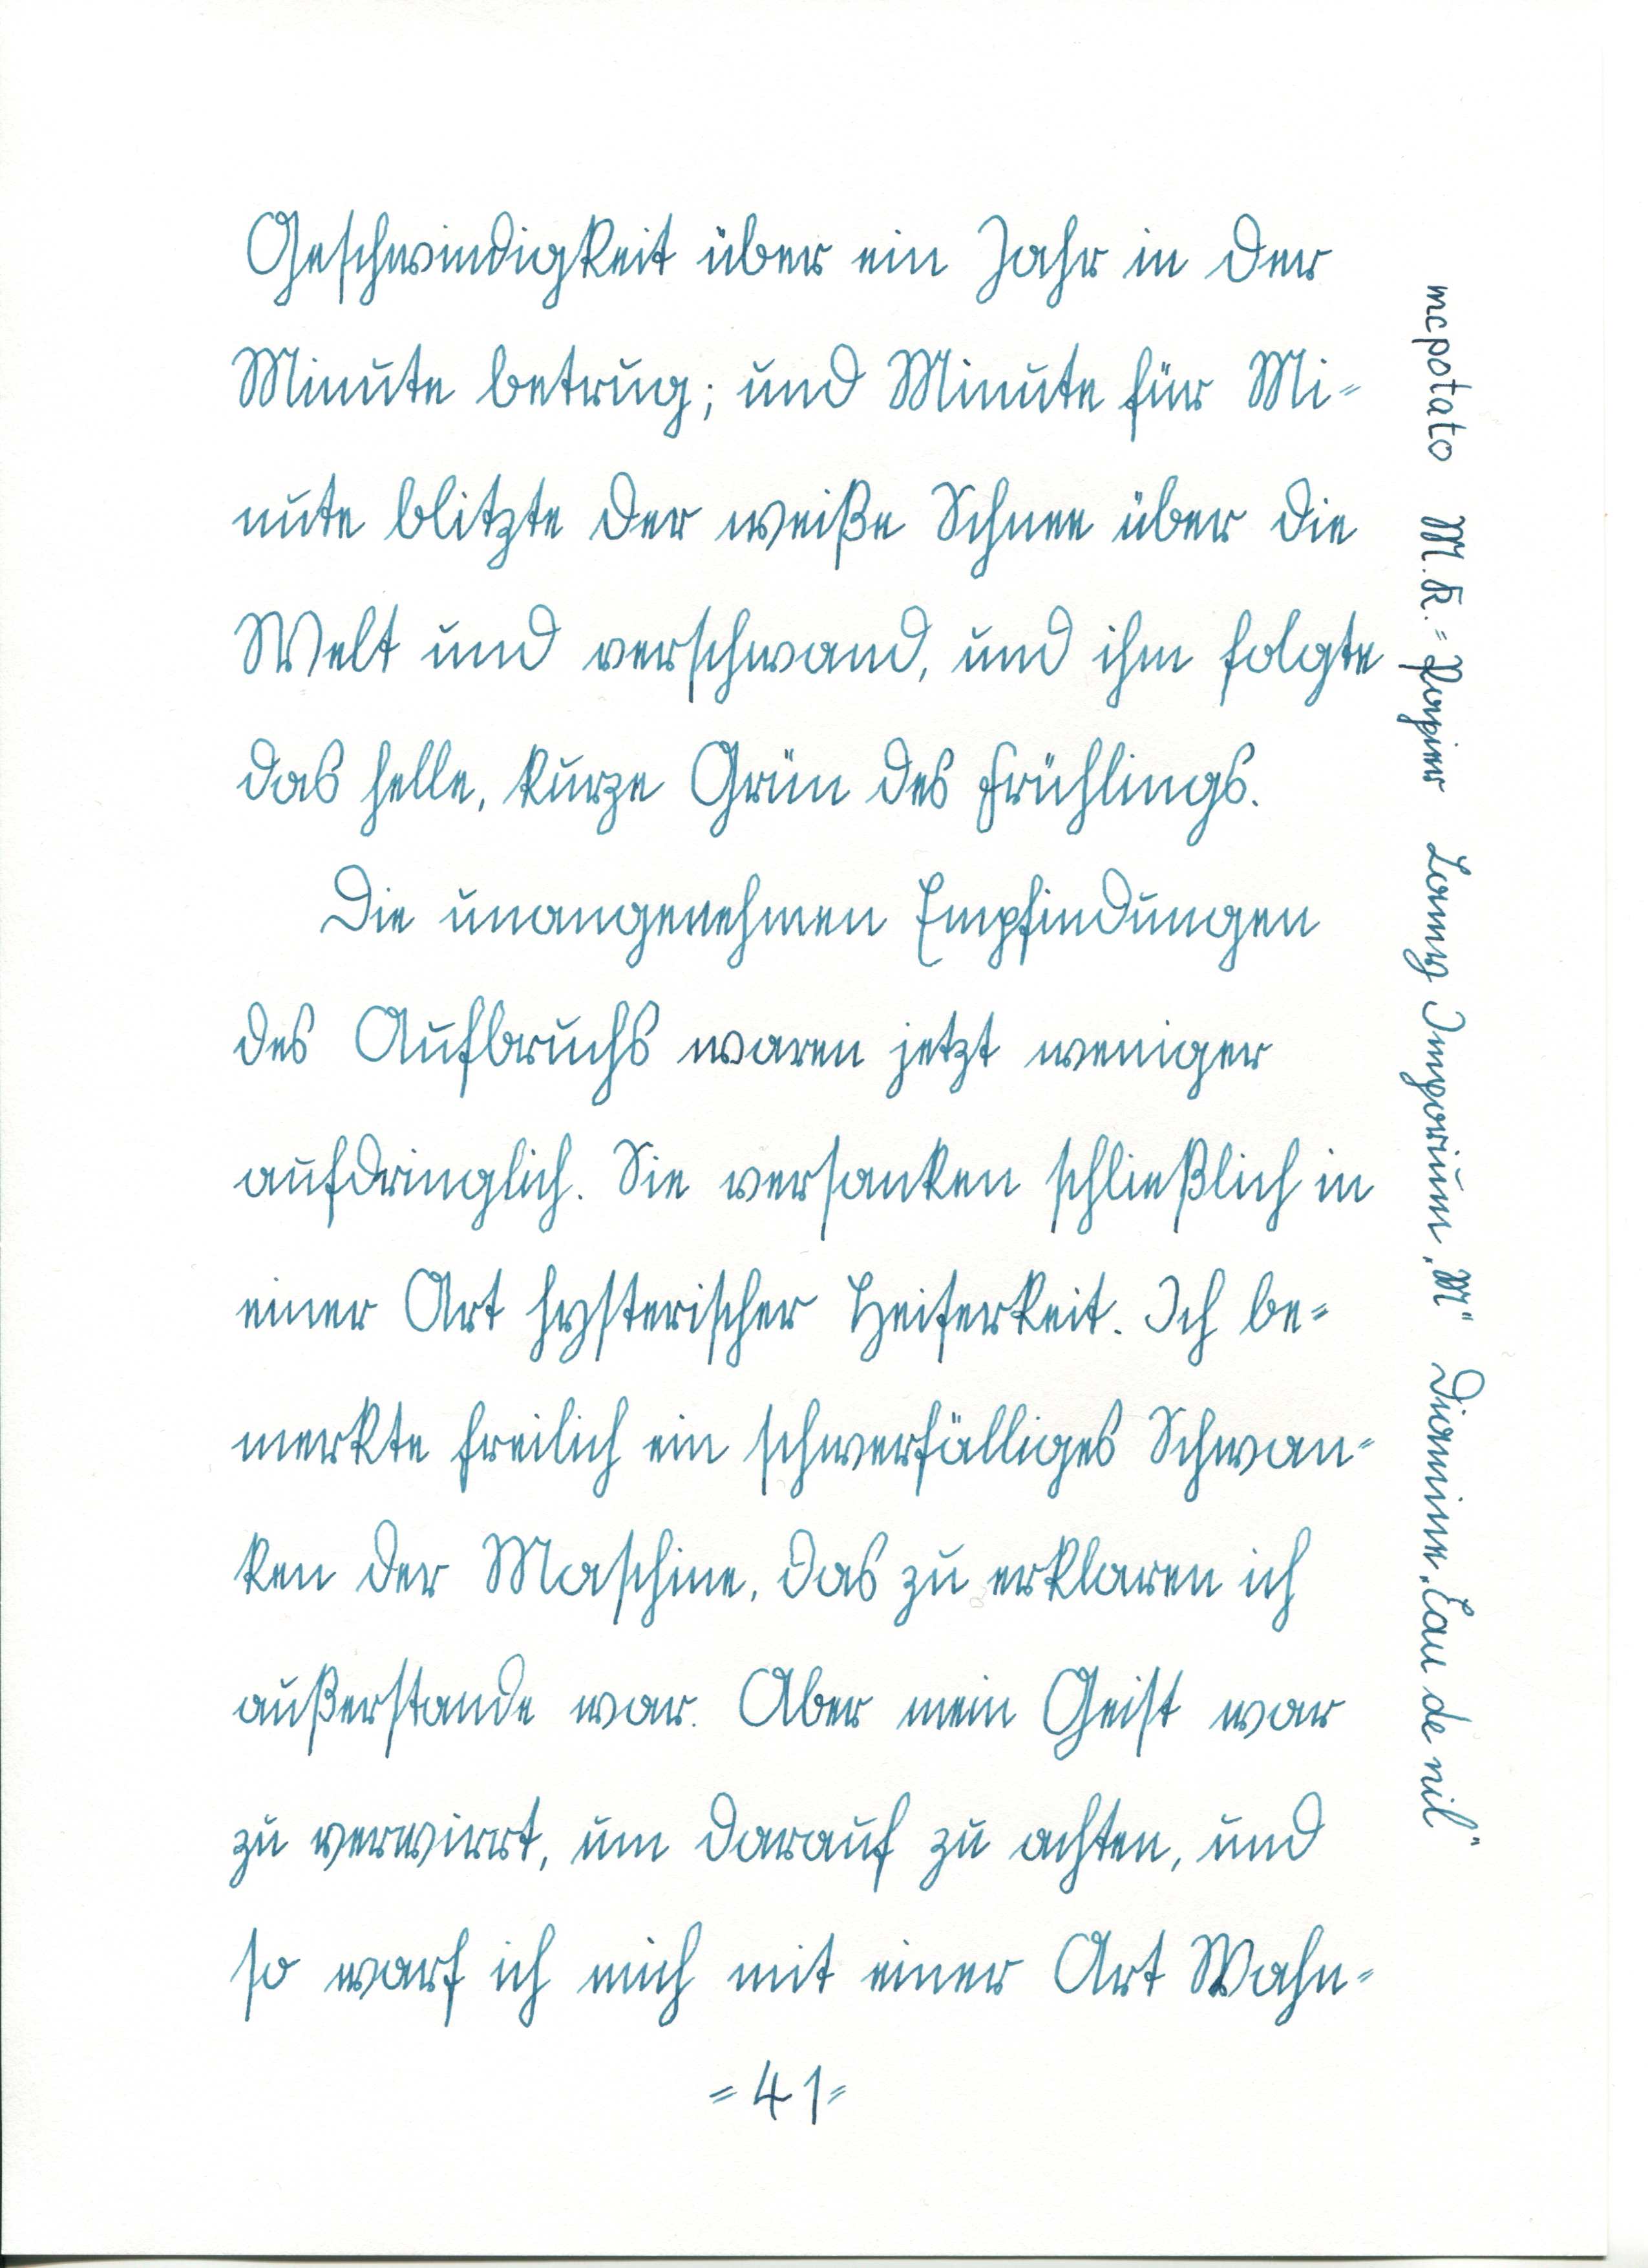 Geschwindigkeit über ein Jahr in der
Minute betrug; und Minute für Mi=
nute blitzte der weiße Schnee über die
Welt und verschwand, und ihm folgte
das helle, kurze Grün des Frühlings.
Die unangenehmen Empfindungen
des Aufbruchs waren jetzt weniger
aufdringlich. Sie versanken schließlich in
einer Art hysterischer Heiserkeit. Ich be=
merkte freilich ein schwerfälliges Schwan=
ken der Maschine, das zu erklaren ich
außerstande war. Aber mein Geist war
zu verwirrt, um darauf zu achten, und
so warf ich mich mit einer Art Wahn=
= 41 =
mcpotato M.K.=Papier Lamy Imporium „M“ Diamine „Eau de nil“